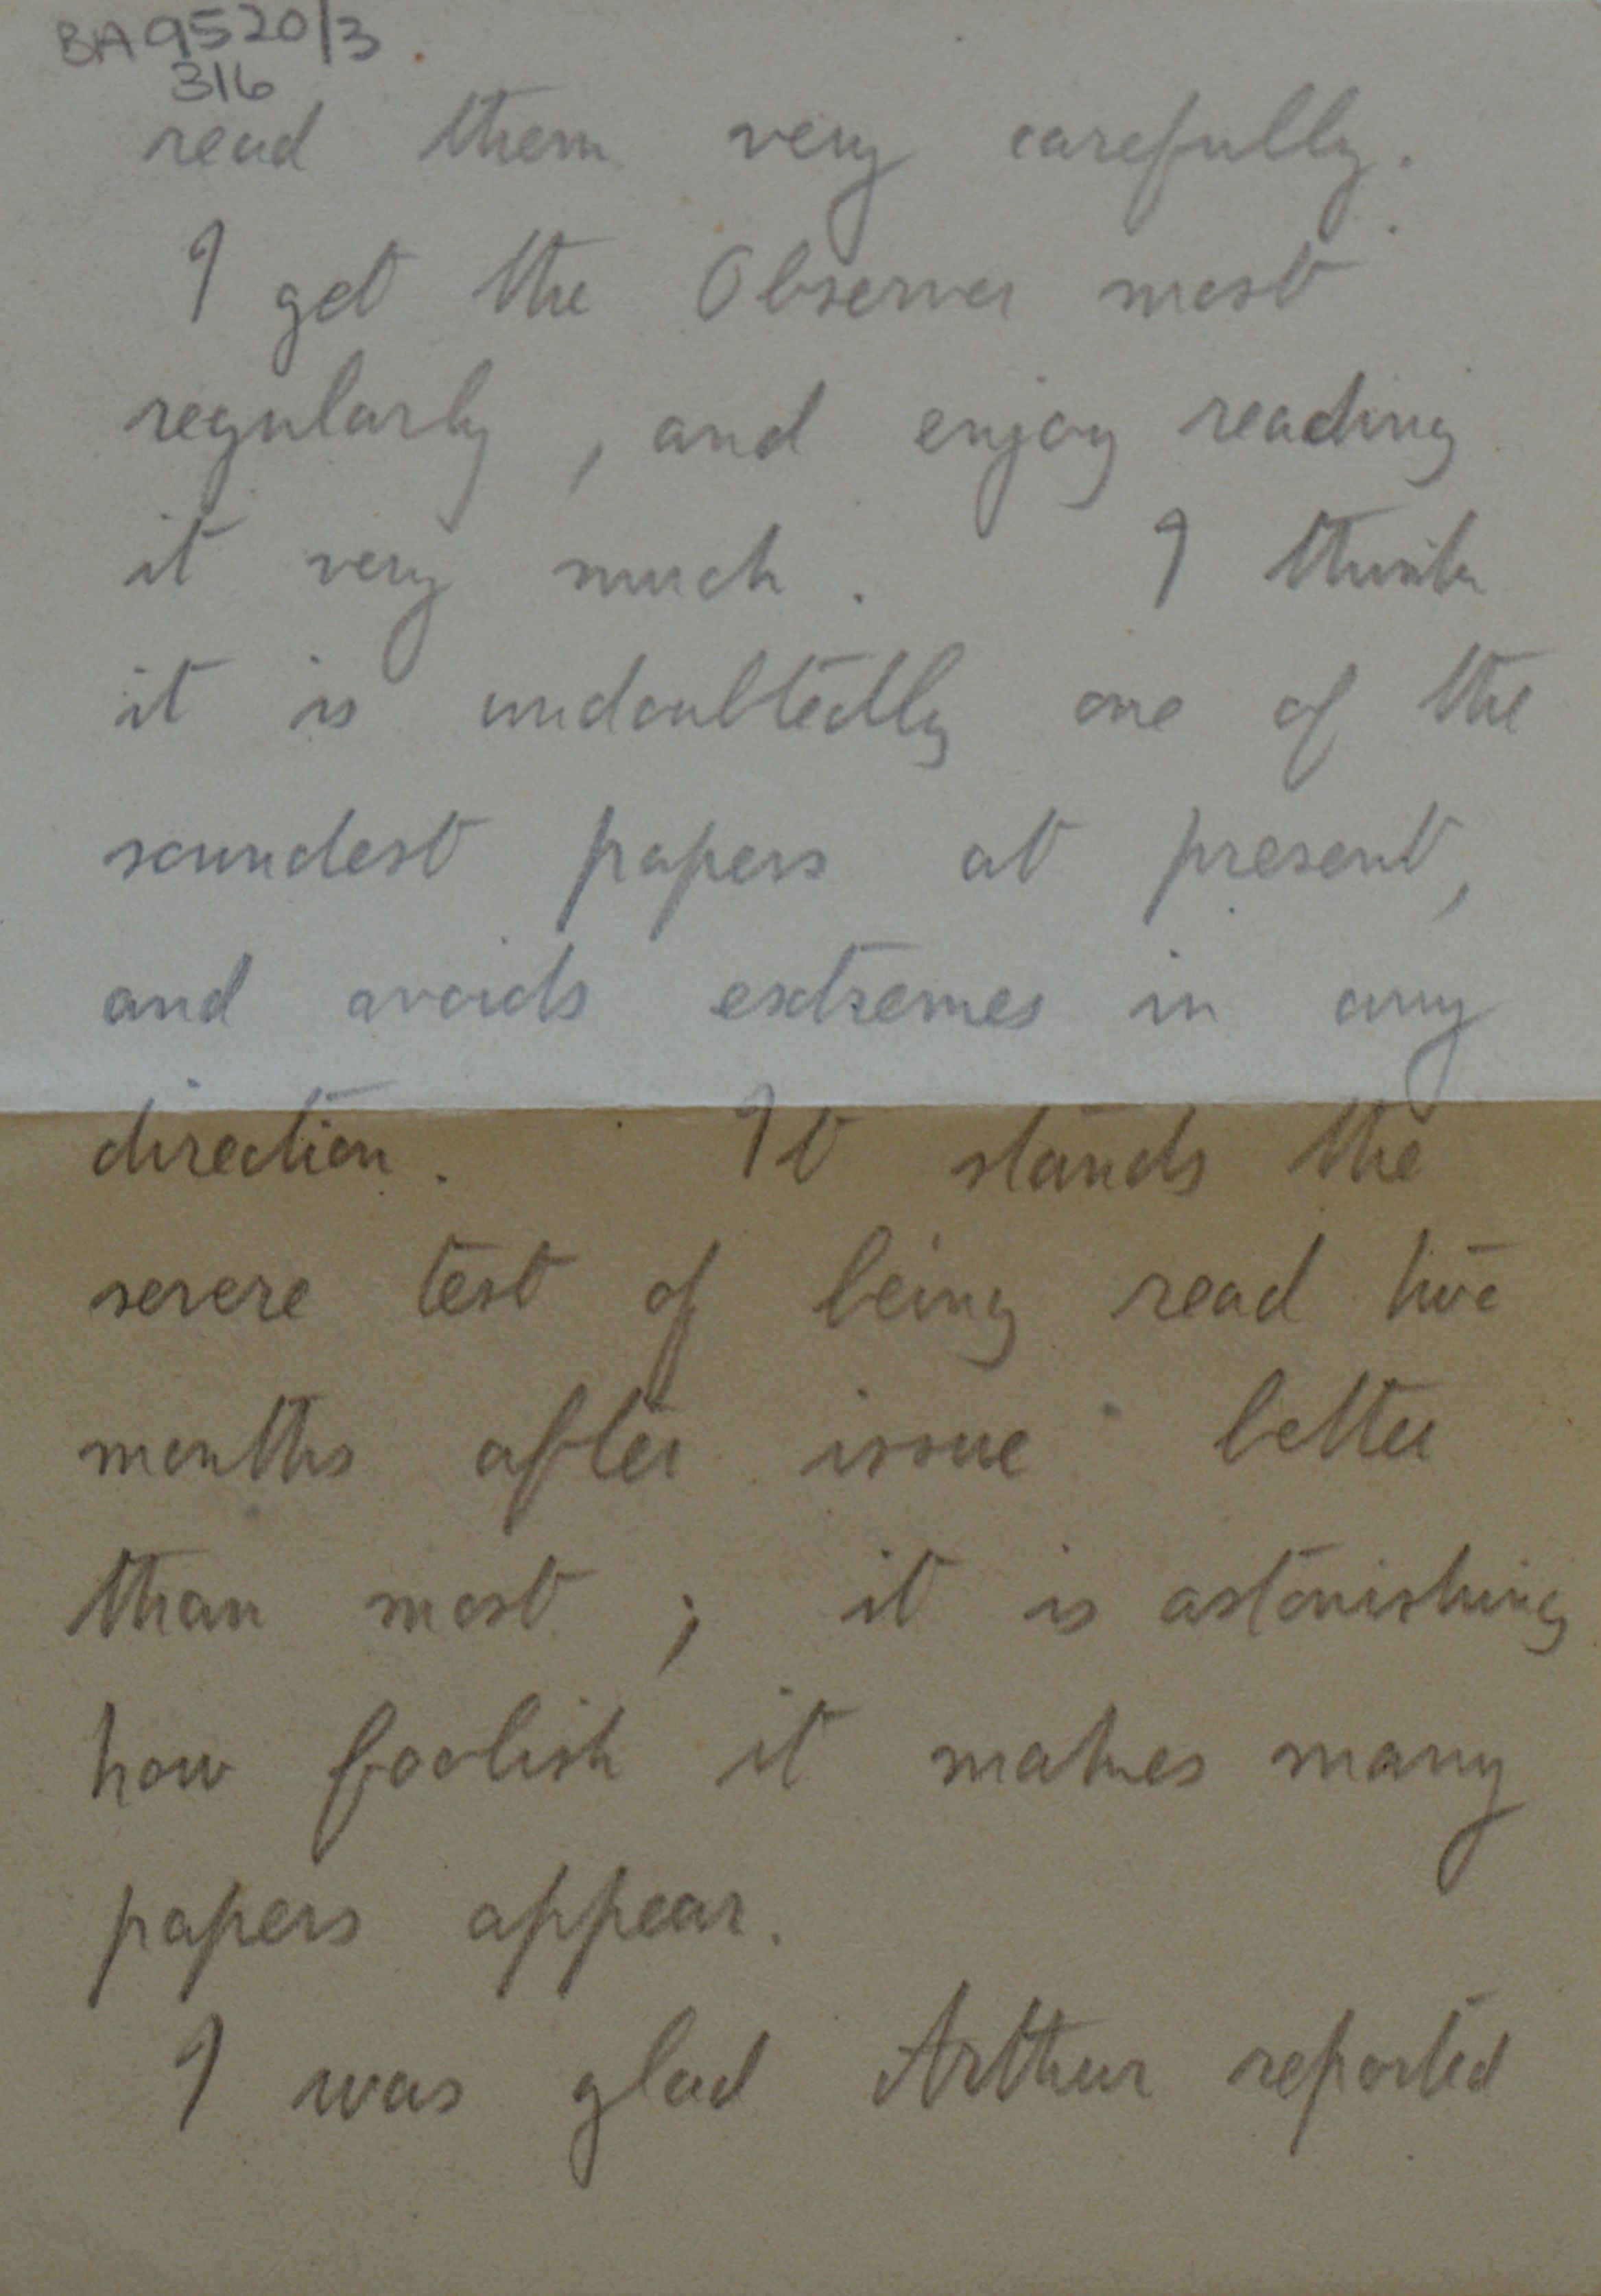 BA9520/3
316
read them very carefully.
I get the Observer most
regularly, and enjoy reading
it very much. I think
it is undoubtedly one of the
soundest papers at present,
and avoids extremes in any
direction. It stands the
severe test of being read two
months after issue better
than most; it is astonishing
how foolish it makes many
papers appear.
I was glad Arthur reported